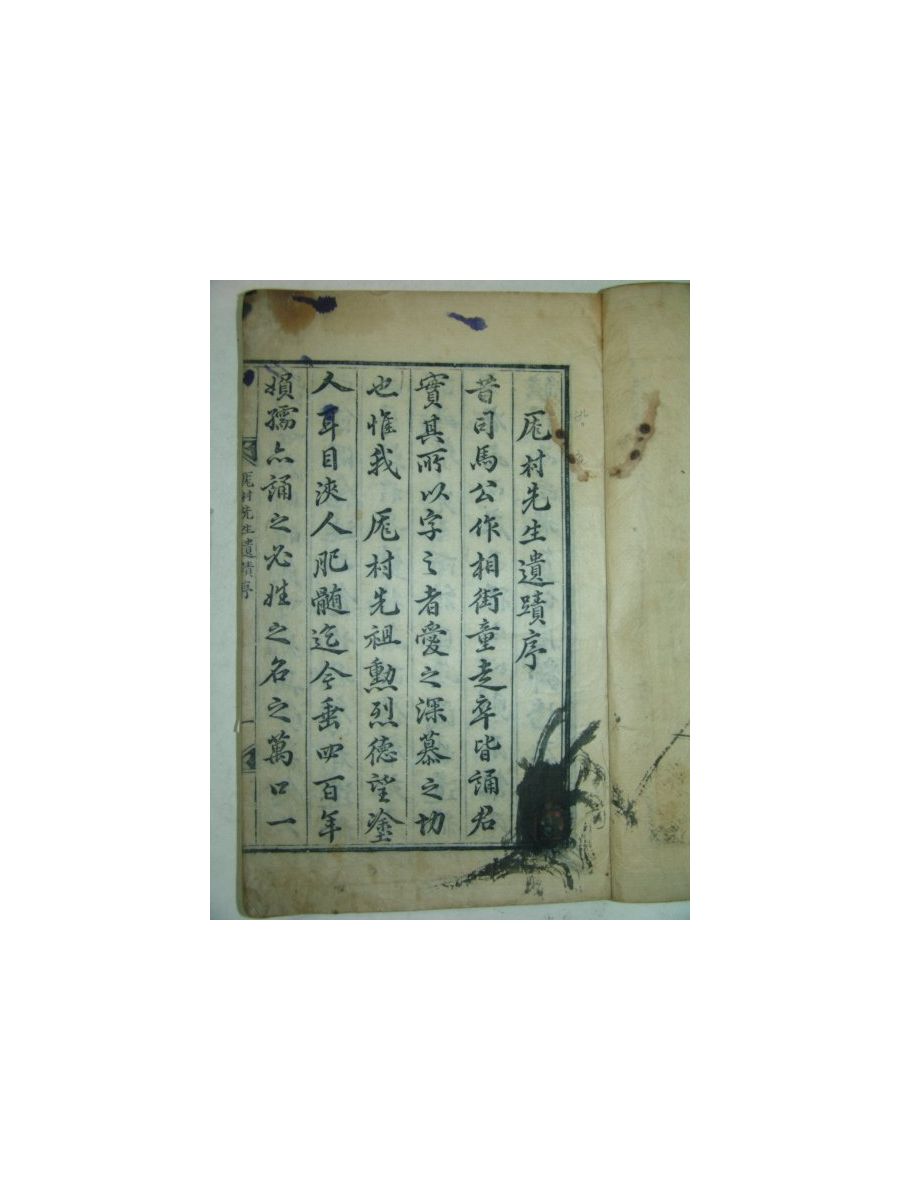 厖村先生遺蹟序
昔司馬公作相街童走卒皆誦君
實其所以字之者愛之深慕之切
也惟我 厖村先祖勳烈德望塗
人耳目浹人肥髓迄今垂四百年
婦孺亦誦之必姓之名之萬口一
厖村先生遺蹟序
一